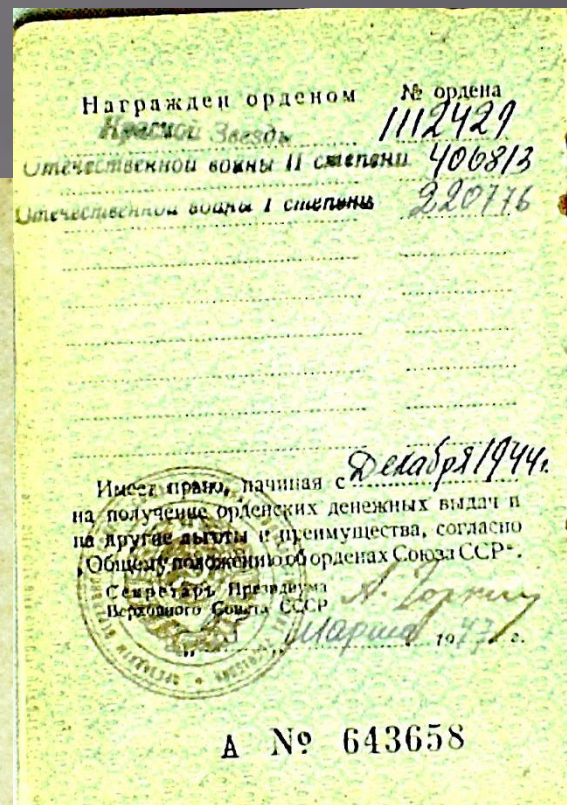 Награжден орденом № ордена
Красной Звезды 1112429
Отечественной войны II степени 406813
Отечественной войны I степени 220776
Имеет право, начиная с Декабря 1944г.
на получение орденских денежных выдач и
на другие льготы и преимущества, согласно
„Общему положению об орденах Союза ССР“.
Секретарь Президиума
Верховного Совета СССР А. Горкин
" " Марта 19 г.
А № 643658